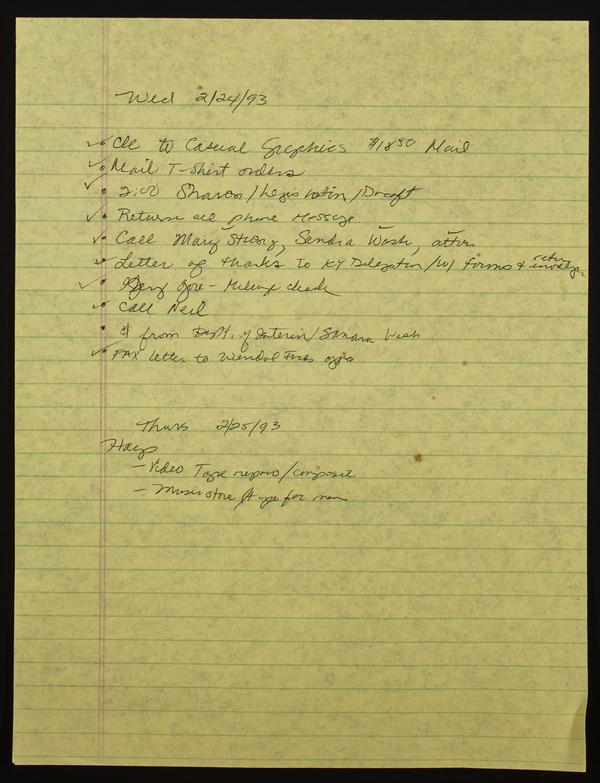 Wed 2/24/93
✓• to Casual Graphics $18.50 Mail
✓• Mail T-Shirt orders
✓• 2:00 Sharon/Legislation/Draft
✓• Return all phone Message
✓• Call Mary Strong, Sandra Wash,
✓• Letter of thanks to KY Delegation/W/ forms &
✓• - Mileage check
✓• Call Neil
• $ from Dept. of Interior/Sandra Wash
✓• FAX letter to Wendal
Thurs 2/25/93
Hays
- Video Tape repro/composit
- Music store for